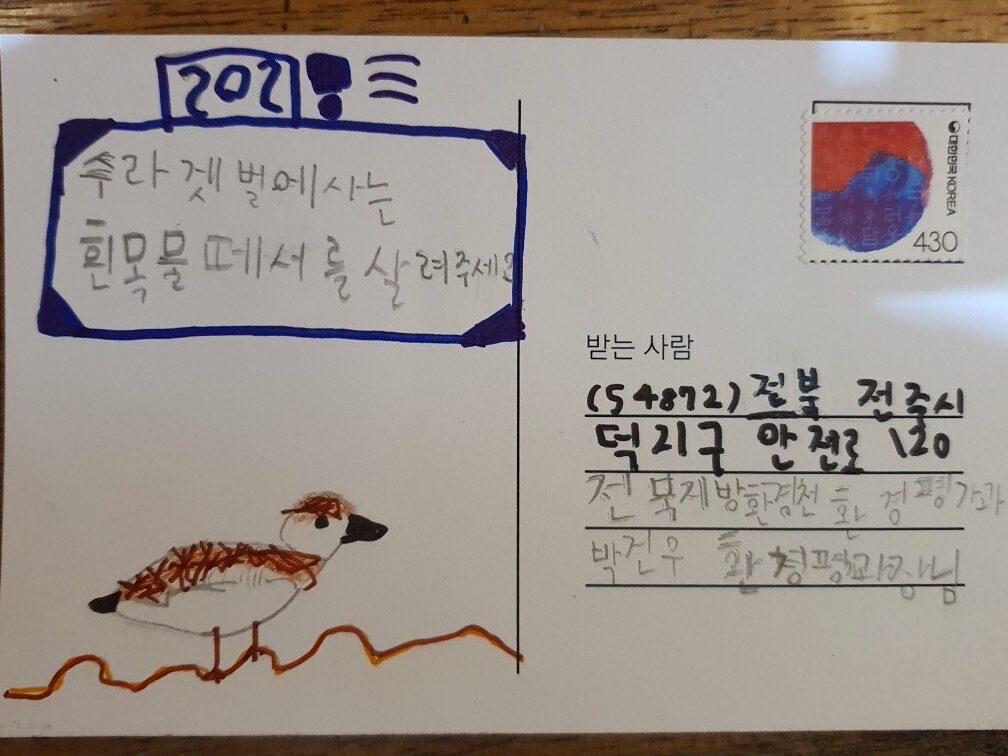 202!
수라 겟벌에사는
흰목물떼서를 살려주세요
대한민국 KOREA
430
받는 사람
(54872) 전북 전주시
덕지구 안전로 120
전북제방환경천 환경평가과
박전우 환경평과장님